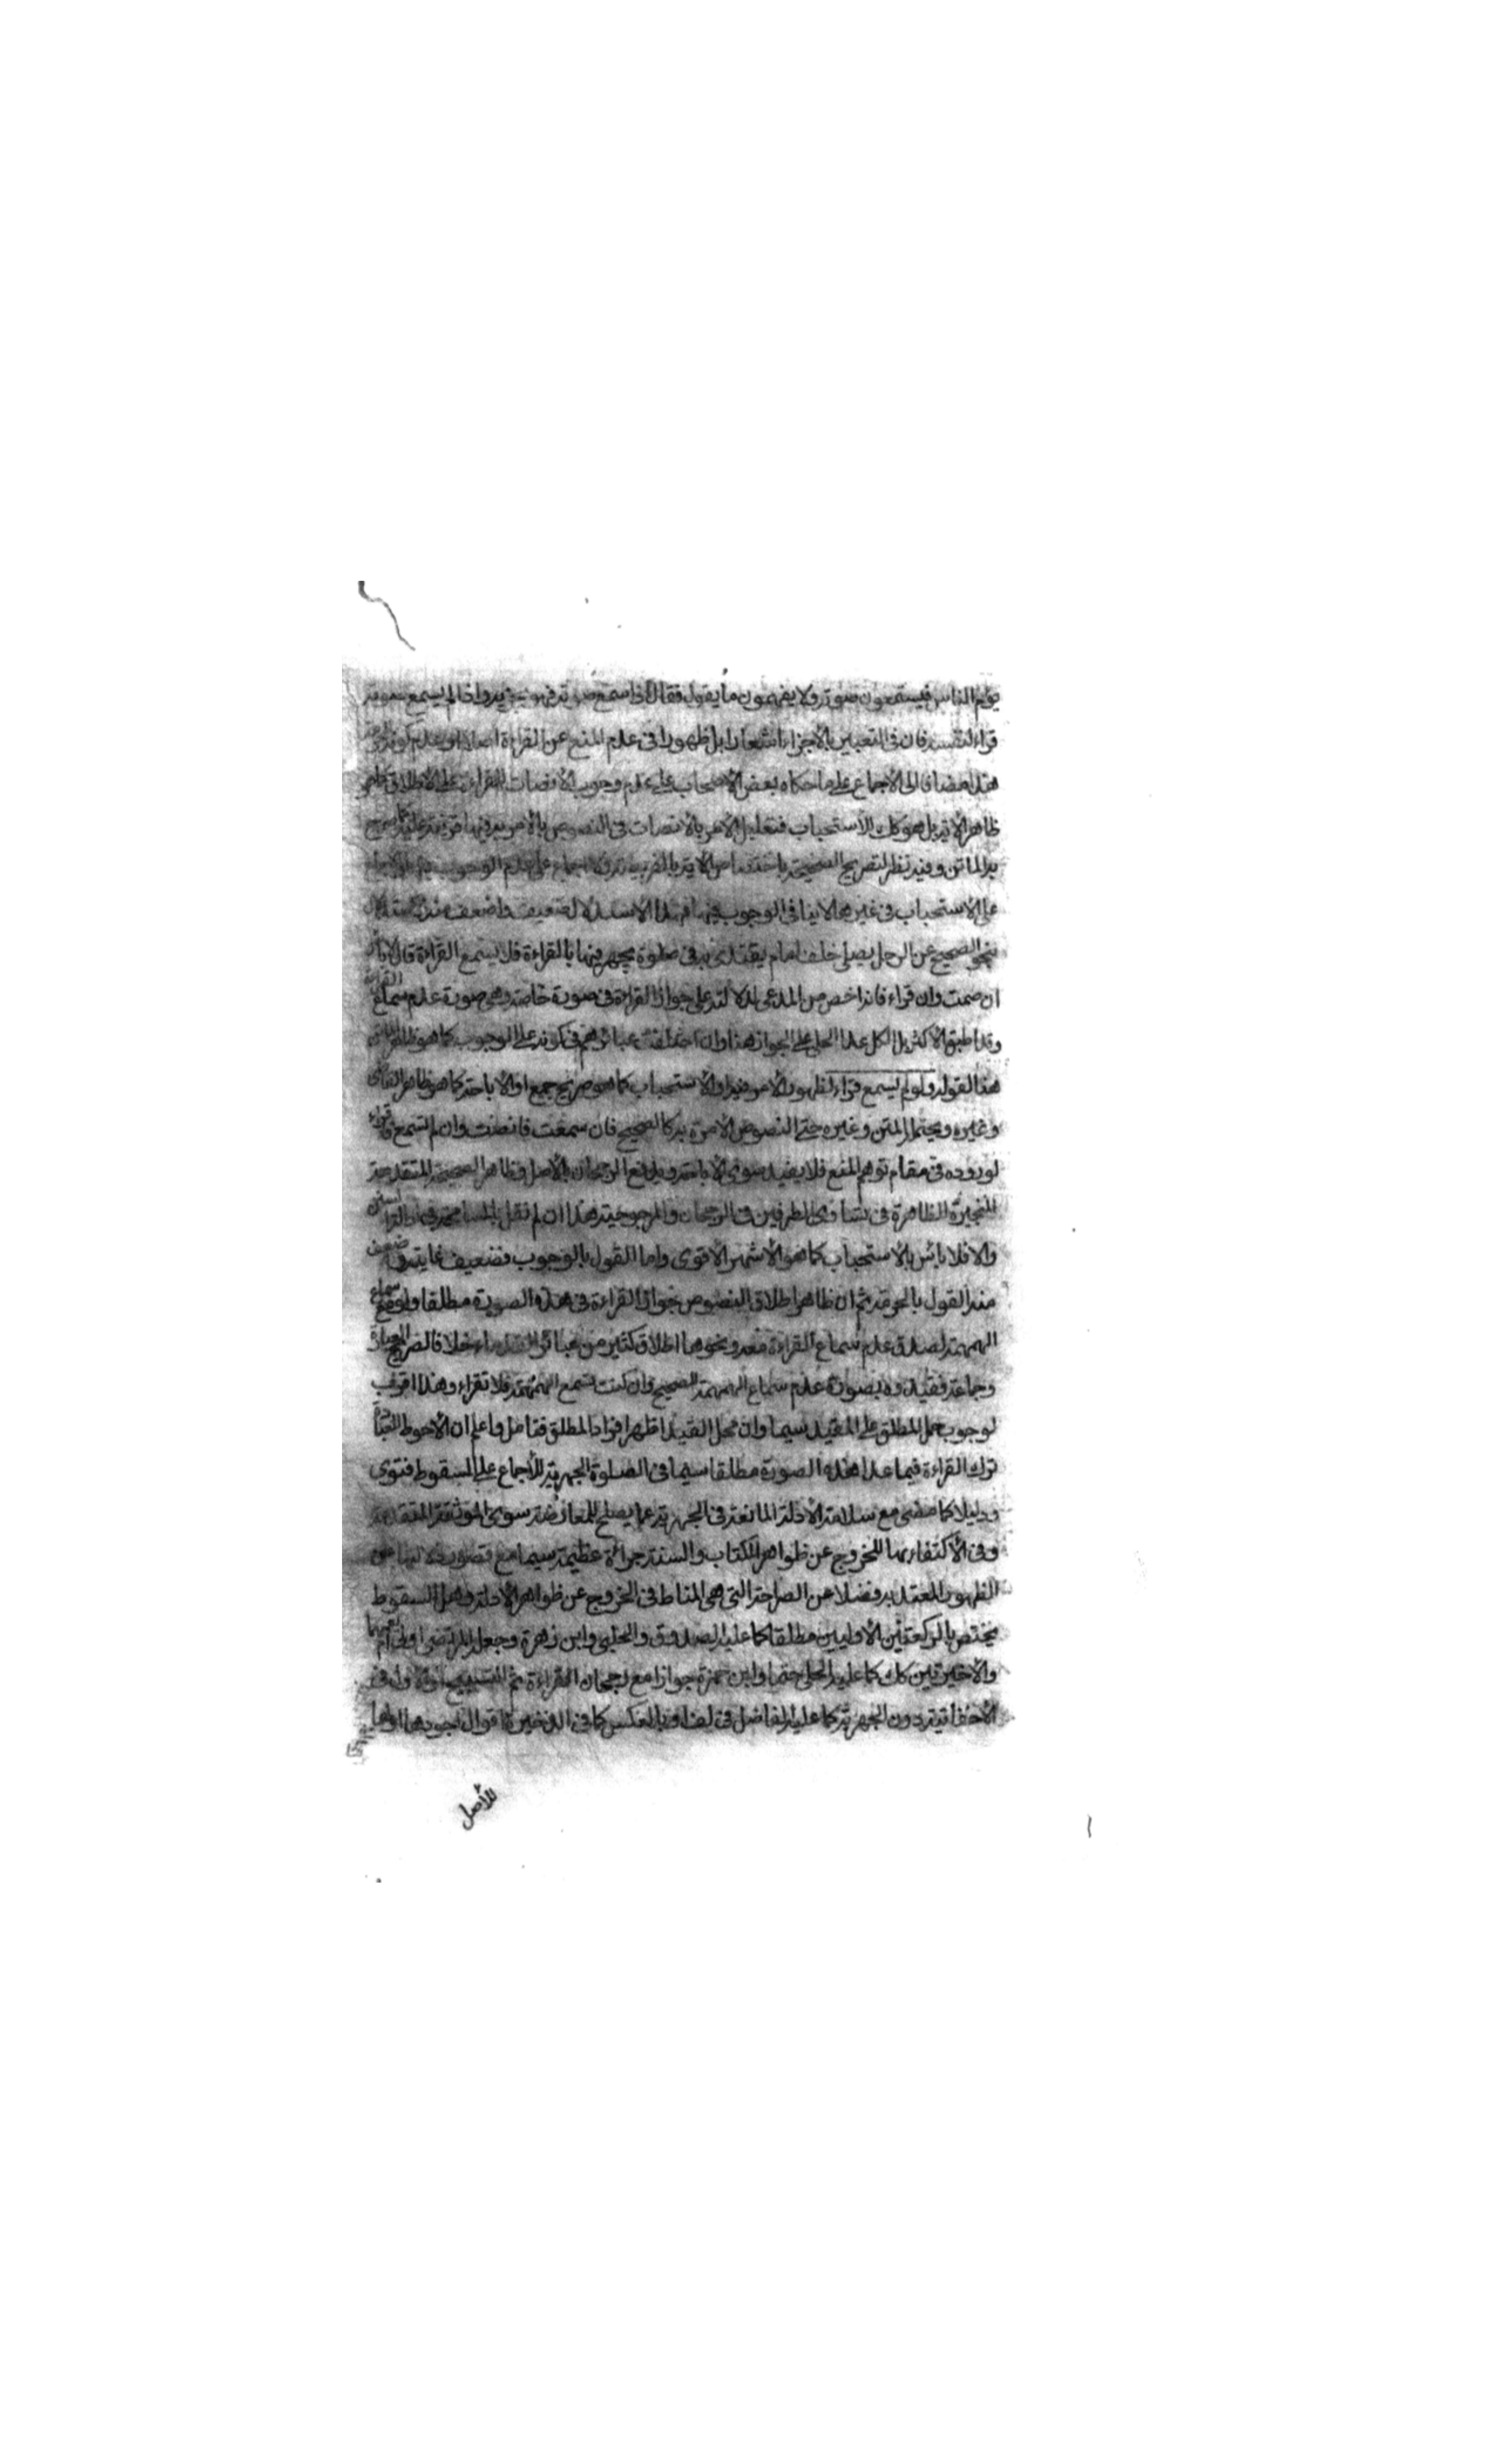 يؤم الناس فيستمعون صوته ولا يفهمون ما يقول فقال اذا سمع صوته فهو يجزيه واذا لم يسمع صوته
قراء لنفسه فان في التعبير بالأجزاء اشعارا بل ظهورا في عدم المنع عن القراءة اصلا
هذا مضافا الى الأجماع على ما حكاه بعض الأصحاب على عدم وجوب الأنصات للقراءة على الأطلاق كما هو
ظاهر الاية بل هو كك للأستحباب فتعليل الأمر بالانصات في النصوص بالأمر به فيها قرينة عليه كما صرح
به الماتن وفيه نظر لتصريح الصحيحة باختصاص الاية بالفريضة فالاجماع على عدم الوجوب
على الاستحباب في غيرهما لا ينافي الوجوب فيهما فهذا الاستدلال ضعيف واضعف منه
بنحو الصحيح عن الرجل يصلى خلف امام يقتدى به في صلوة يجهر فيها بالقراءة فلا يسمع القراءة قال لا بأس
ان صمت وان قراء فانه اخص من المدعى لدلالته على جواز القراءة في صورة خاصة وهي صورة عدم سماع القراءة
وقد اطبق الأكثر بل الكل عدا الحلى على الجواز هنا وان اختلفت عبائرهم في كونه على الوجوب كما هو ظاهر
هنا لقوله ولو لم يسمع قراء لظهور الأمر فيه او الأستحباب كما هو صريح جمع او الأباحة كما هو ظاهر القاضى
وغيره ويحتمل المتن وغيره حتى النصوص الآمرة به كالصحيح فان سمعت فانصت وان لم تسمع فاقراء
لوروده في مقام توهم المنع فلا يفيد سوى الأباحة ويدفع الرجحان بالأصل وظاهر الصحيحة المتقدمة
المخيرة الظاهرة في تساوى الطرفين في الرجحان والمرجوحية هذا ان لم نقل بالمسامحة في ادلة السنن
والا فلا بأس بالاستحباب كما هو الأشهر الأقوى واما القول بالوجوب فضعيف غايته ضعيف
منه القول بالحرمة ثم ان ظاهر اطلاق النصوص جواز القراءة في هذه الصورة مطلقا ولو مع سماع
الهمهمة لصدق عدم سماع القراءة معه ونحوها اطلاق كثير من عبائر القدماء خلافا لصريح
وجماعة فقيدوه بصورة عدم سماع الهمهمة للصحيح وان كنت تسمع الهمهمة فلا تقراء وهذا اقرب
لوجوب حمل المطلق على المقيد سيما وان محل القيد اظهر افراد المطلق فتامل واعلم ان الأحوط
ترك القراءة فيما عدا هذه الصورة مطلقا سيما في الصلوة الجهرية للأجماع على السقوط فتوى
ودليلا كما مضى مع سلامة الأدلة المانعة في الجهرية عما يصلح للمعارضة سوى الموثقة المتقدمة
وفي الأكتفاء بها للخروج عن ظواهر الكتاب والسنة جرأة عظيمة سيما مع قصور دلالتها عن
الظهور المعتد به فضلا عن الصراحة التي هي المناط في الخروج عن ظواهر الأدلة وهل السقوط
يختص بالركعتين الأوليين مطلقا كما عليه الصدوق والحلبى وابن زهرة وجعله المرتضى اولى ام يعمهما
والأخيرتين كك كما عليه الحلى حتما وابن حمزة جوازا مع رجحان القراءة ثم التسبيح
الأخفاتية دون الجهرية كما عليه الفاضل في لف او بالعكس كما في الذخيرة اقوال اجودها اولها
للأصل